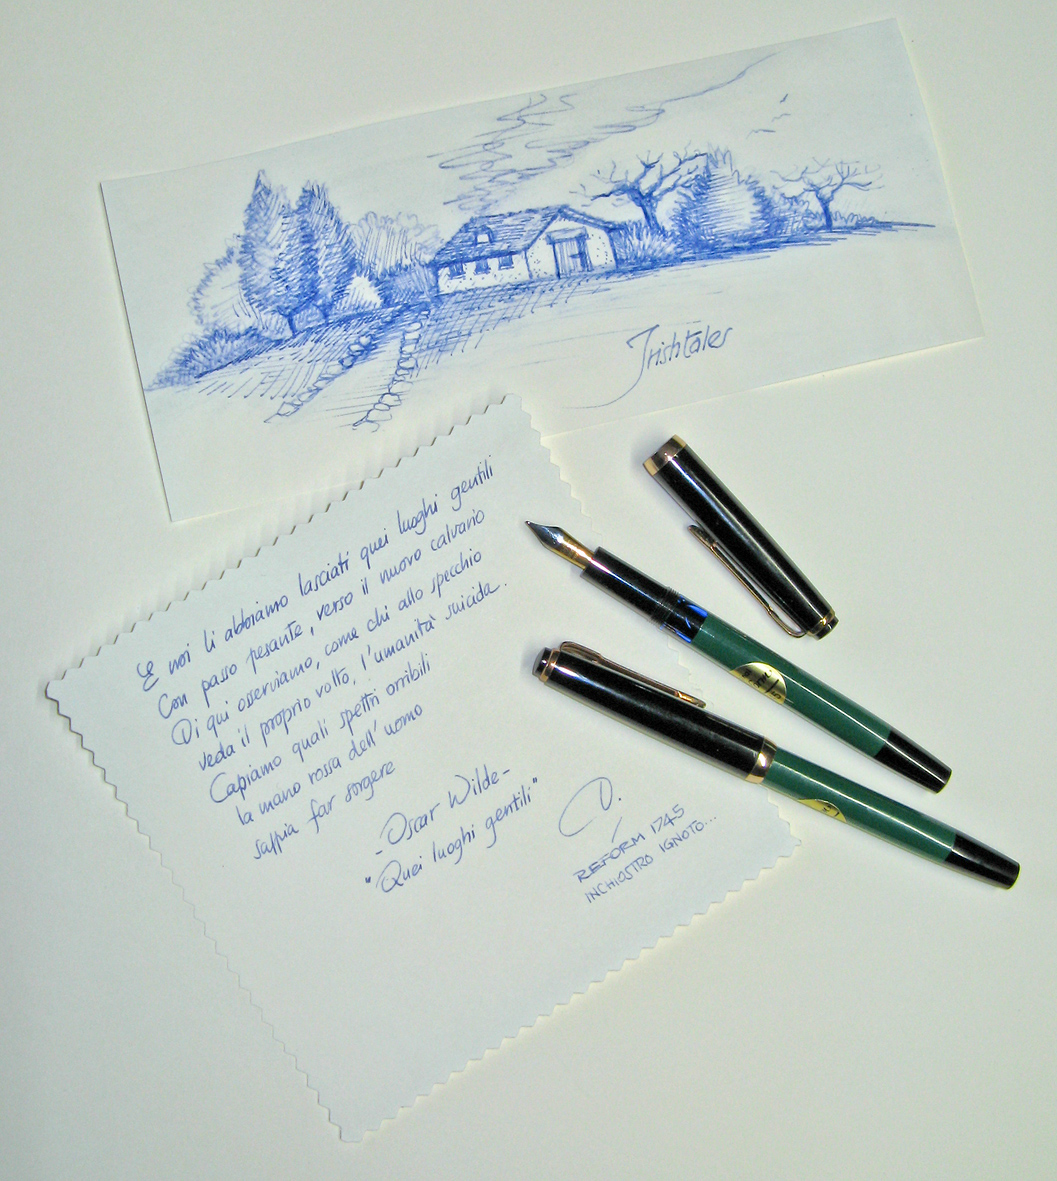 Irishtales
E noi li abbiamo lasciati quei luoghi gentili
Con passo pesante, verso il nuovo calvario
Di qui osserviamo, come chi allo specchio
veda il proprio volto, l'umanità suicida.
Capiamo quali spettri orribili
la mano rossa dell'uomo
sappia far sorgere
- Oscar Wilde -
"Quei luoghi gentili"
REFORM 1745
INCHIOSTRO IGNOTO...